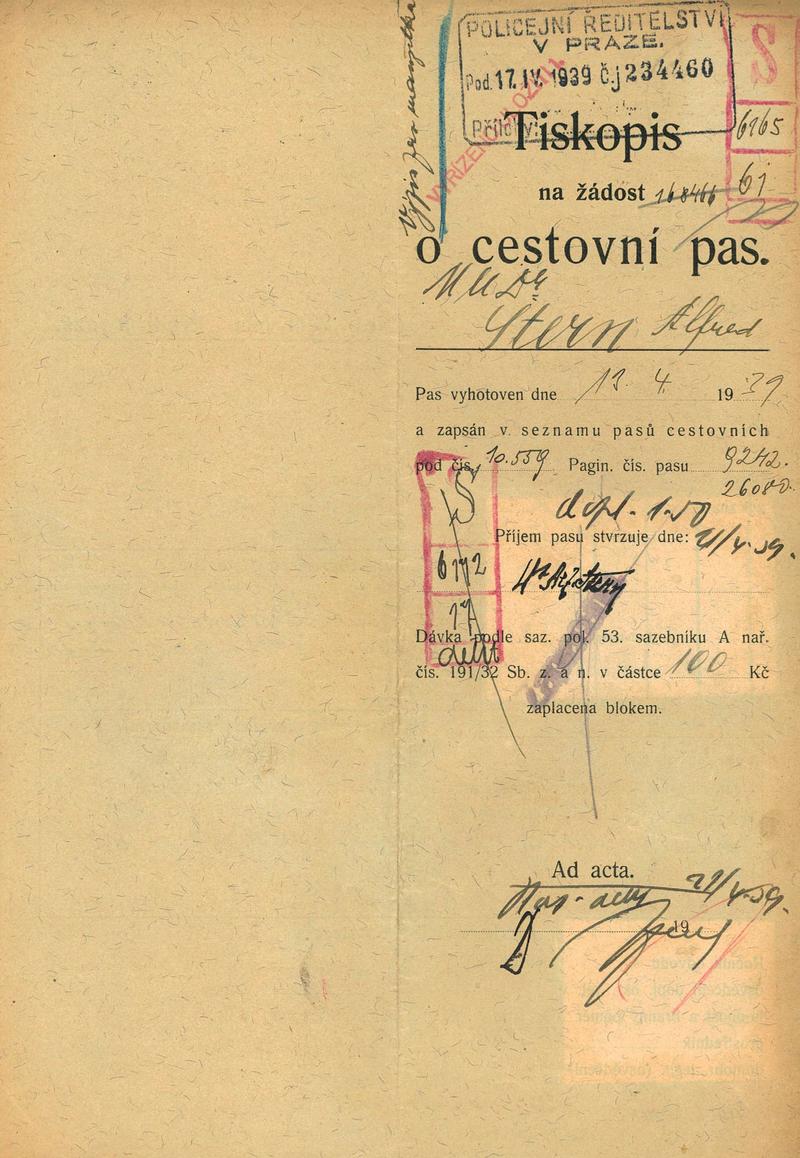 POLICEJNÍ ŘEDITELSTVÍ
V PRAZE.
Pod. 17. IV. 1939 č.j 234460
S
6165
61
Tiskopis
na žádost
o cestovní pas.
MUDr
Stern Alfred
Pas vyhotoven dne 13. 4. 1939
a zapsán v seznamu pasů cestovních
pod čís. 10.559 Pagin. čís. pasu 9242.
S
dopl. 1.50
Příjem pasu stvrzuje dne: 21/4.39.
6172
17
Dávka podle saz. pol. 53. sazebníku A nař.
čís. 191/32 Sb. z. a n. v částce 100 Kč
zaplacena blokem.
Ad acta.
21/4.39.
19